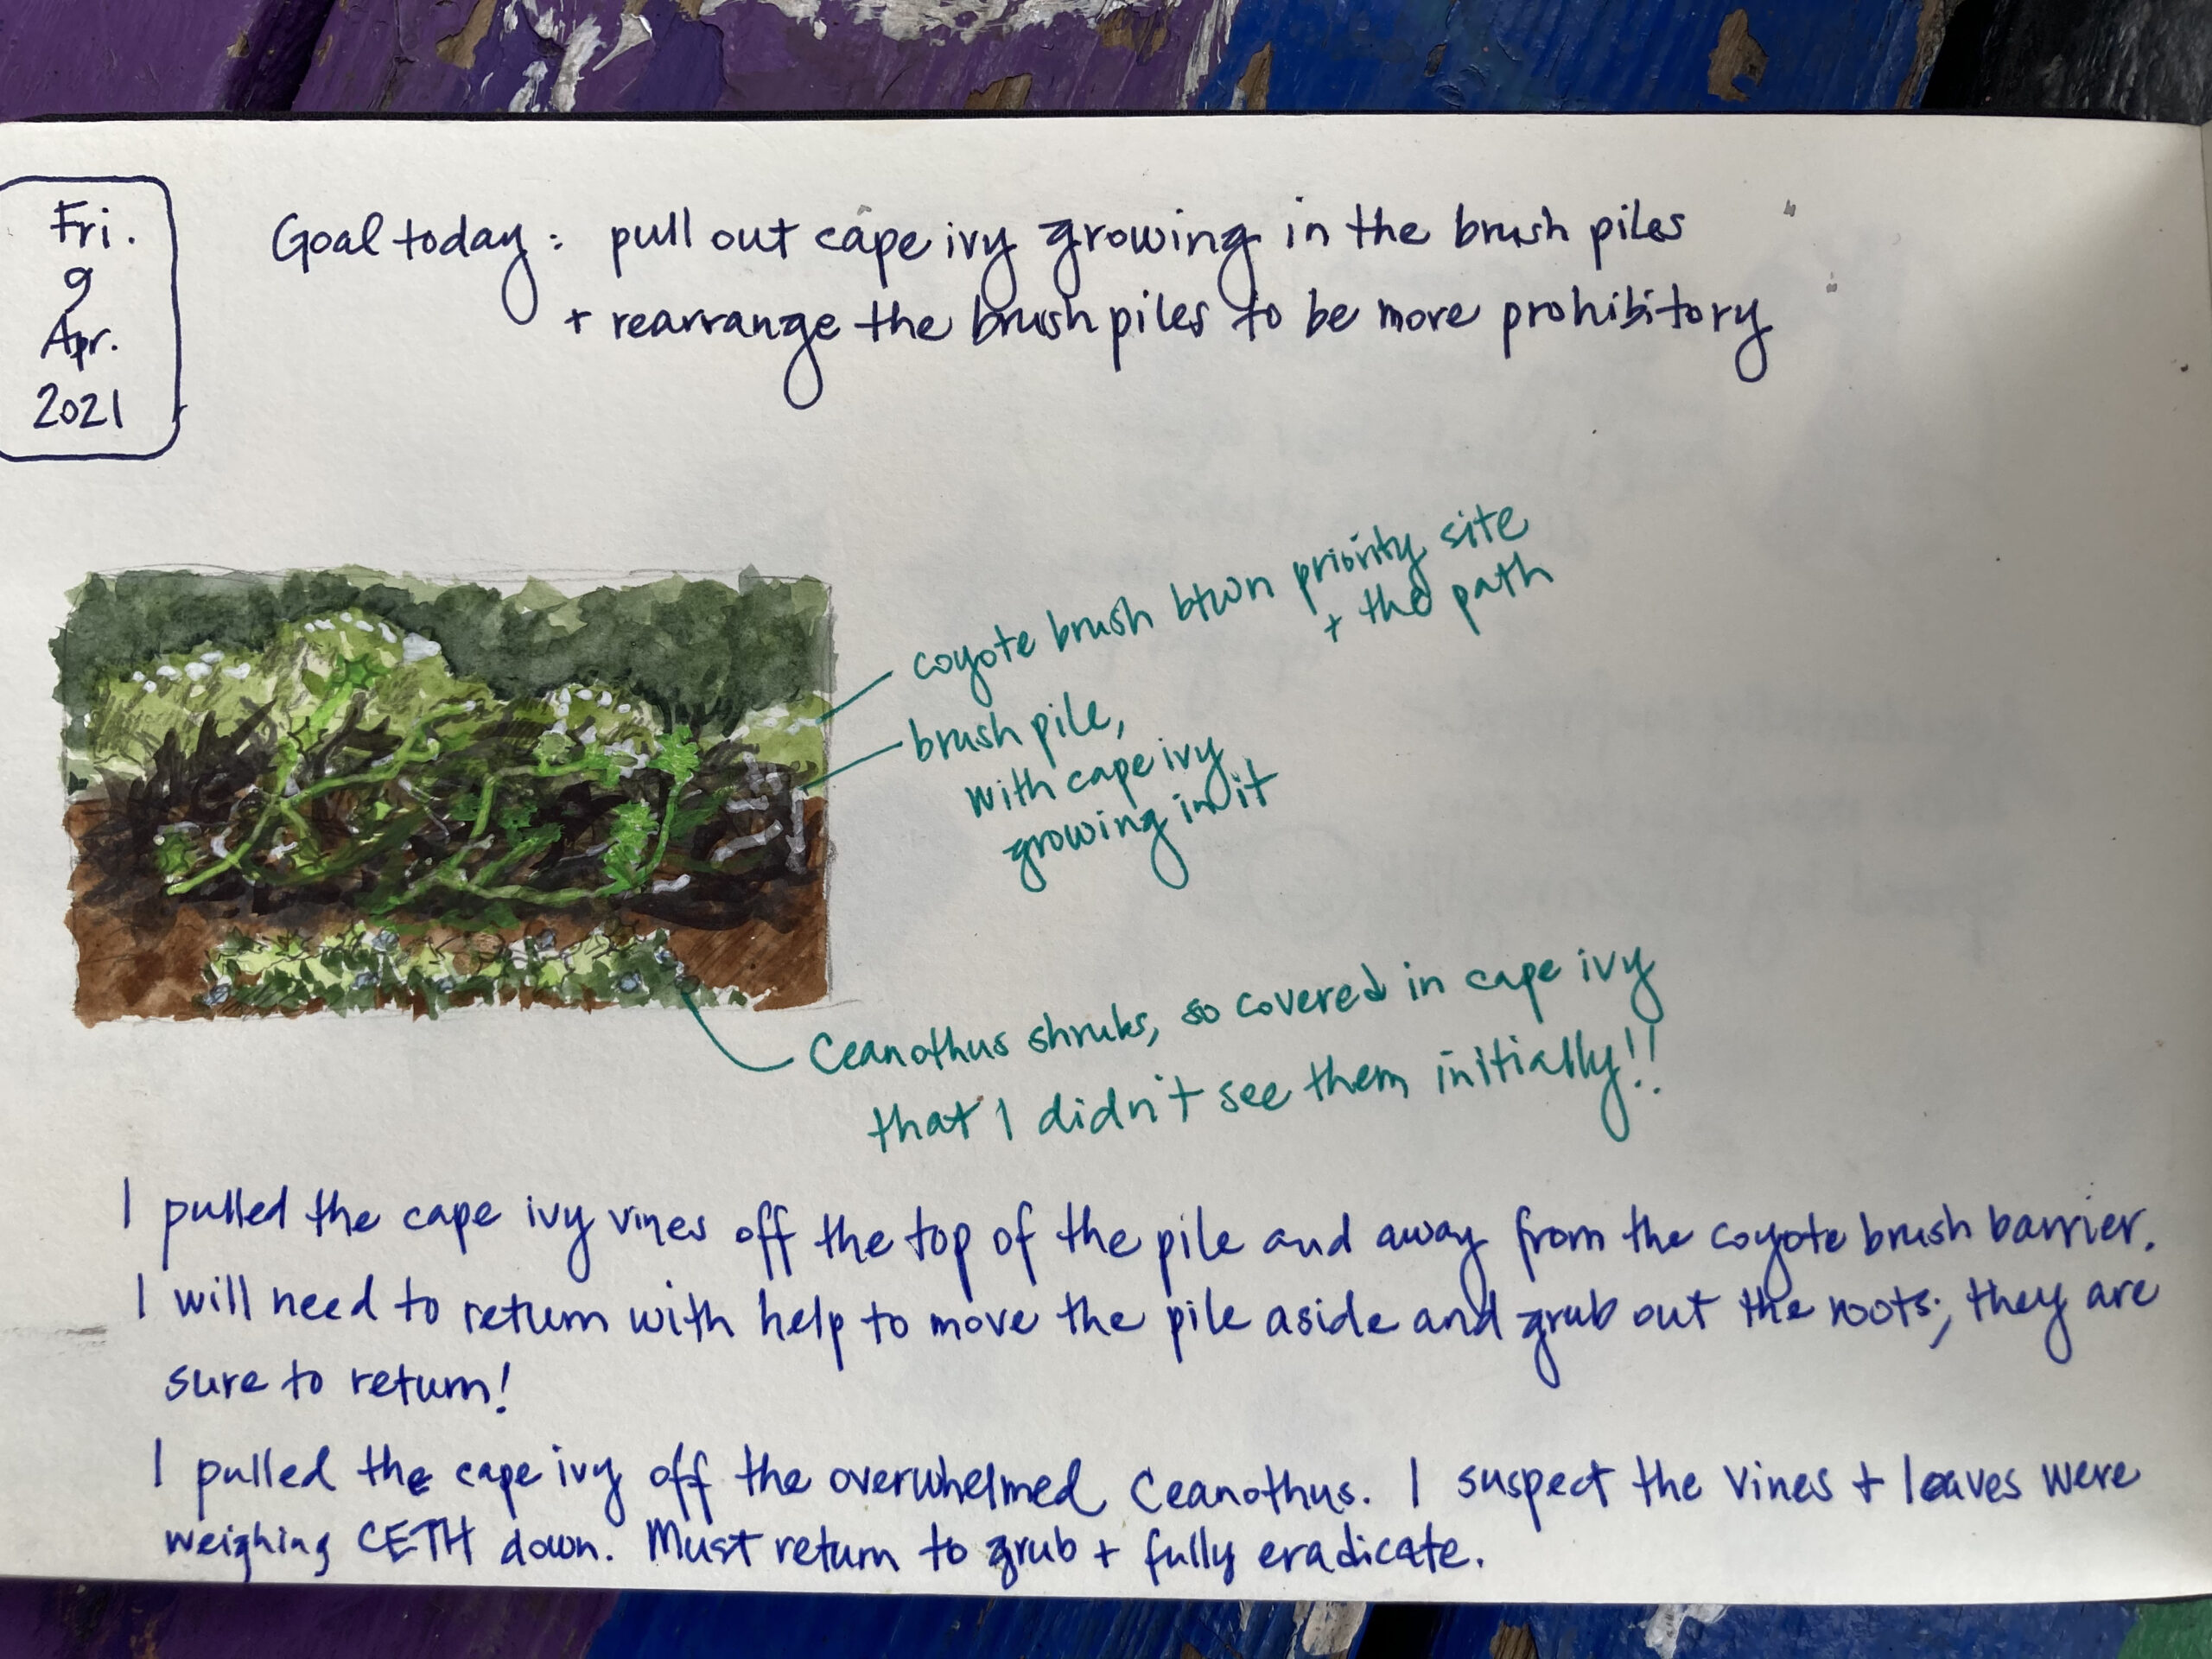 Fri.
9
Apr.
2021
Goal today: pull out cape ivy growing in the brush piles
+ rearrange the brush piles to be more prohibitory
coyote brush btwn priority site
+ the path
brush pile,
with cape ivy
growing in it
Ceanothus shrubs, so covered in cape ivy
that I didn't see them initially!!
I pulled the cape ivy vines off the top of the pile and away from the coyote brush barrier.
I will need to return with help to move the pile aside and grub out the roots; they are
sure to return!
I pulled the cape ivy off the overwhelmed Ceanothus. I suspect the vines + leaves were
weighing CETH down. Must return to grub + fully eradicate.